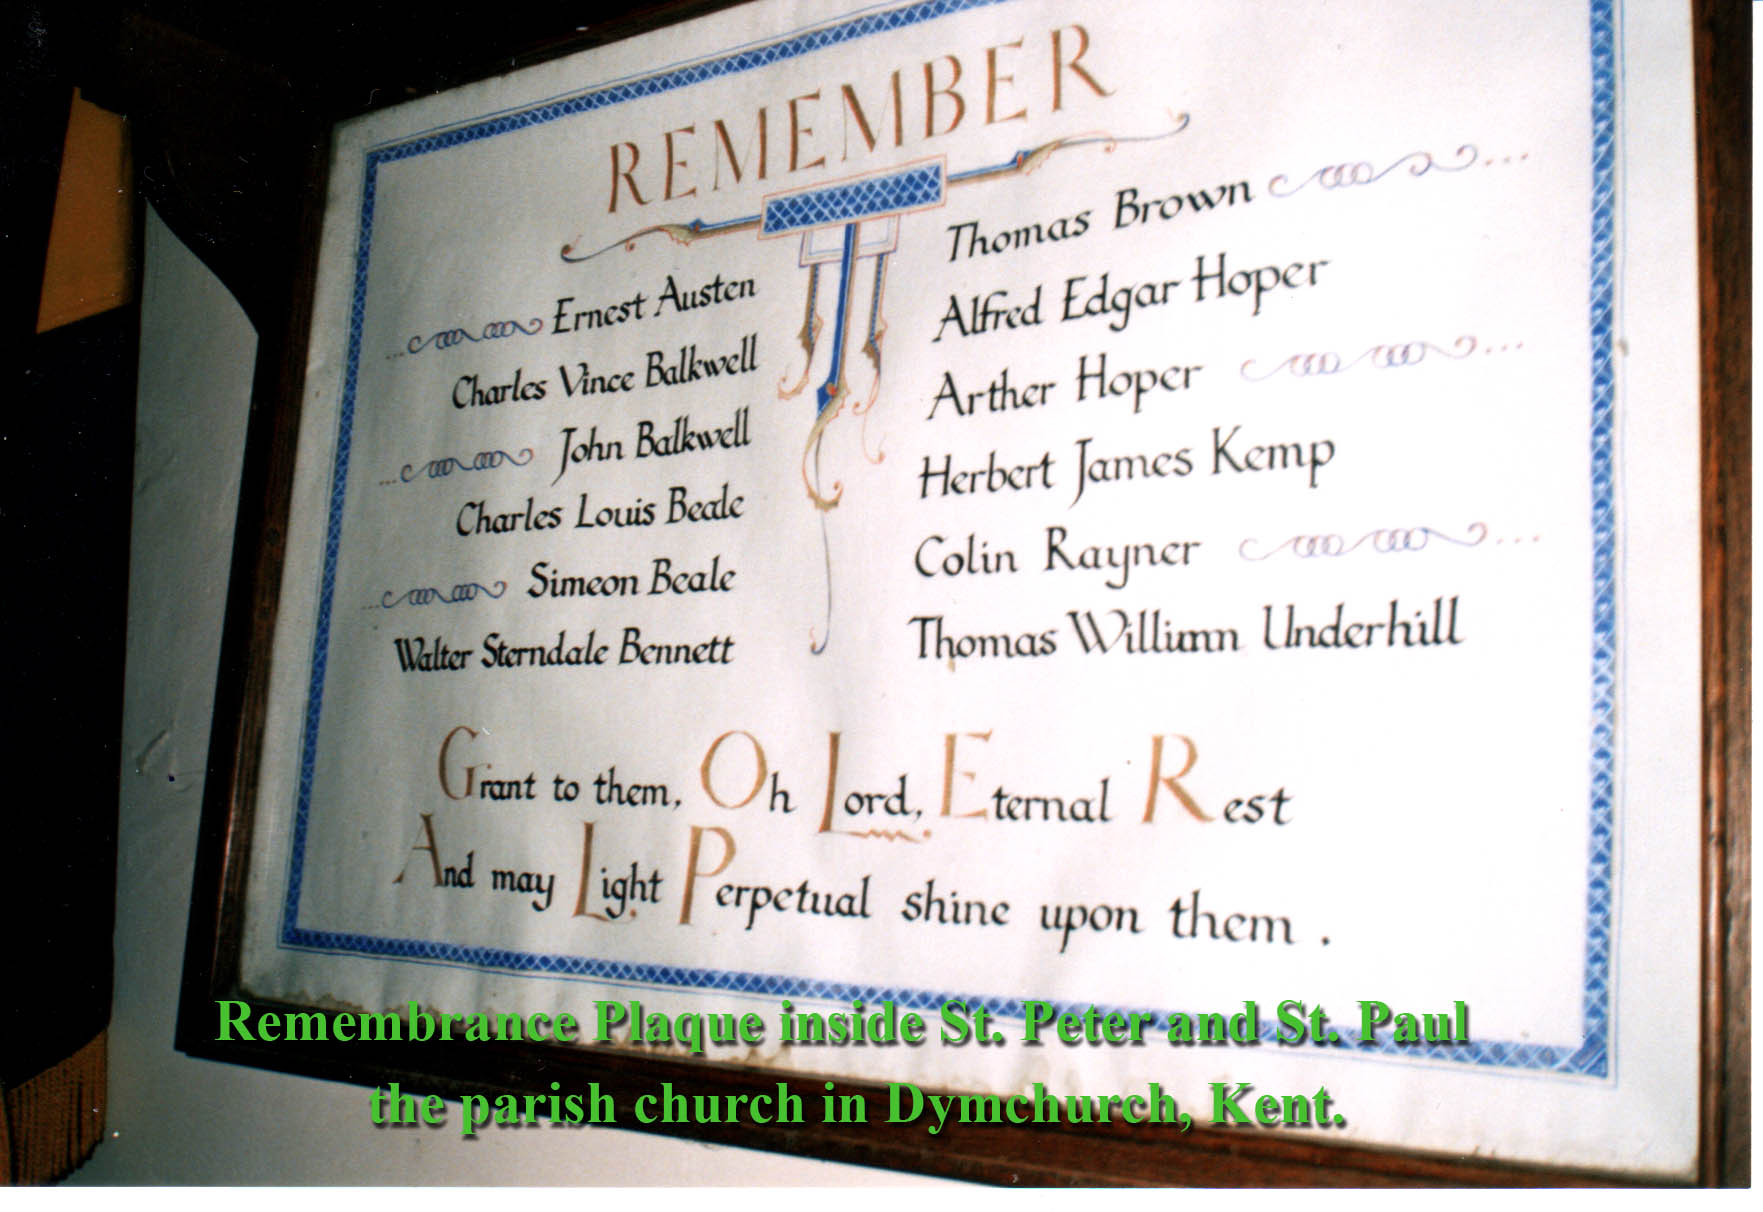 REMEMBER
Ernest Austen
Charles Vince Balkwell
John Balkwell
Charles Louis Beale
Simeon Beale
Walter Sterndale Bennett
Thomas Brown
Alfred Edgar Hoper
Arther Hoper
Herbert James Kemp
Colin Rayner
Thomas William Underhill
Grant to them, Oh Lord, Eternal Rest
And may Light Perpetual shine upon them.
Remembrance Plaque inside St. Peter and St. Paul
the parish church in Dymchurch, Kent.